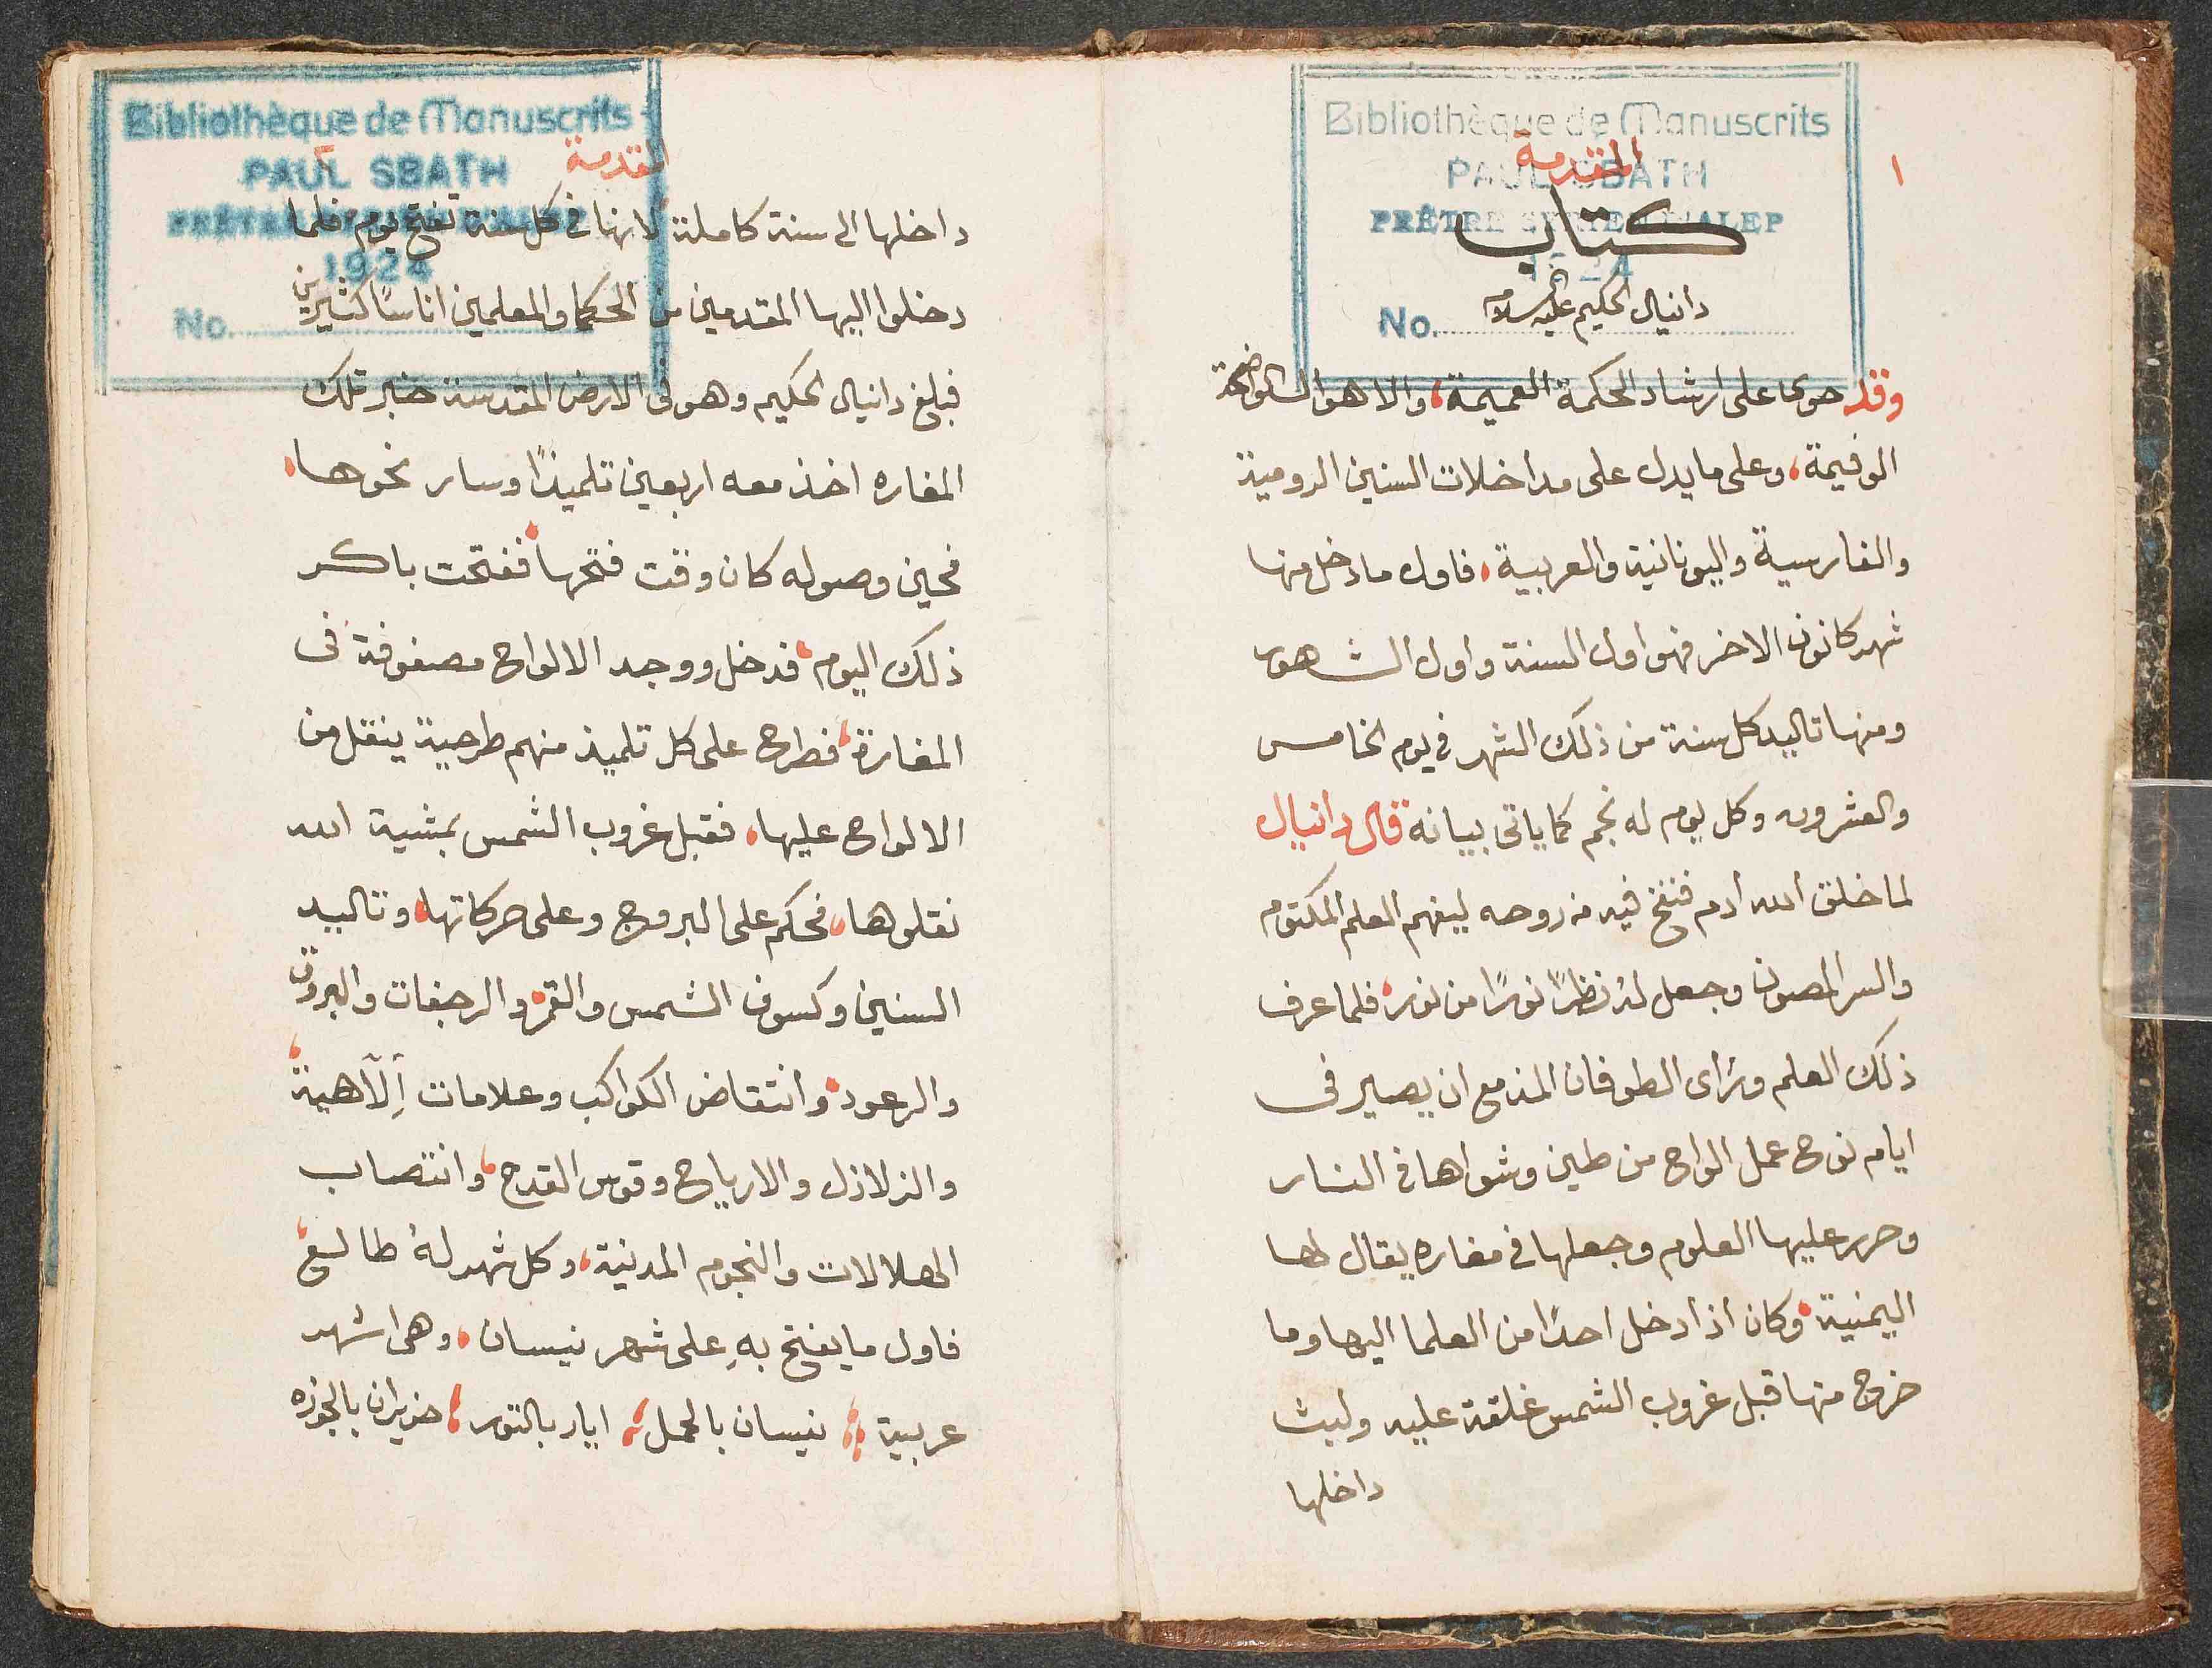 Bibliothèque de Manuscrits
PAUL SBATH
PRÊTRE SYRIEN D'ALEP
1924
No.
١
المقدمة
كتاب
دانيال الحكيم عليه السلام
وقد حوى على ارشاد الحكمة العميمة، والاهوال الواضحة
الوفيمة، وعلى ما يدل على مداخلات السنين الرومية
والفارسية واليونانية والعربية، فاول ما دخل منها
شهر كانون الاخر فهو اول السنة واول الشهور
ومنها تاليد كل سنة من ذلك الشهر في يوم الخامس
والعشرون وكل يوم له نجم كما ياتى بيانه قال دانيال
لما خلق الله ادم فنفخ فيه من روحه ليفهم العلم المكتوم
والسر المصون وجعل لهُ نظرًا نورًا من نوره فلما عرف
ذلك العلم وراى الطوفان المزمع ان يصير فى
ايام نوح عمل الواح من طين وشواها في النار
وحرر عليها العلوم وجعلها في مغاره يقال لها
اليمنية، وكان اذا دخل احدًا من العلما اليها وما
خروج منها قبل غروب الشمس غلقة عليه ولبث
داخلها
Bibliothèque de Manuscrits
PAUL SBATH
PRÊTRE SYRIEN D'ALEP
1924
No.
المقدمة
داخلها الى سنة كاملة لانها في كل سنة تفتح يوم، فلما
دخلوا اليها المقدمين من الحكما والمعلمين اناسًا كثيرين
فبلغ دانيال الحكيم وهو فى الارض المقدسة خبر تلك
المغاره اخذ معه اربعين تلميذًا وسار نحوها،
فحين وصوله كان وقت فتحها، ففتحت باكر
ذلك اليوم، فدخل ووجد الالواح مصفوفة فى
المغارة، فطرح على كل تلميذ منهم طرحية ينقل من
الالواح عليها، فقبل غروب الشمس بمشية الله
نقلوها، فحكم على البروج وعلى حركاتها، وتاليد
السنين وكسوف الشمس والقمر، والرجفات والبروق
والرعود، وانتقاض الكواكب وعلامات اِلآهية،
والزلازل والارياح وقوس القدح، وانتصاب
الهلالات والنجوم المدنية، وكل شهر لهُ طالع،
فاول ما يفتح بهِ على شهر نيسان، وهى اشهر
عربية، نيسان بالحمل، ايار بالثور، حزيران بالجوزه